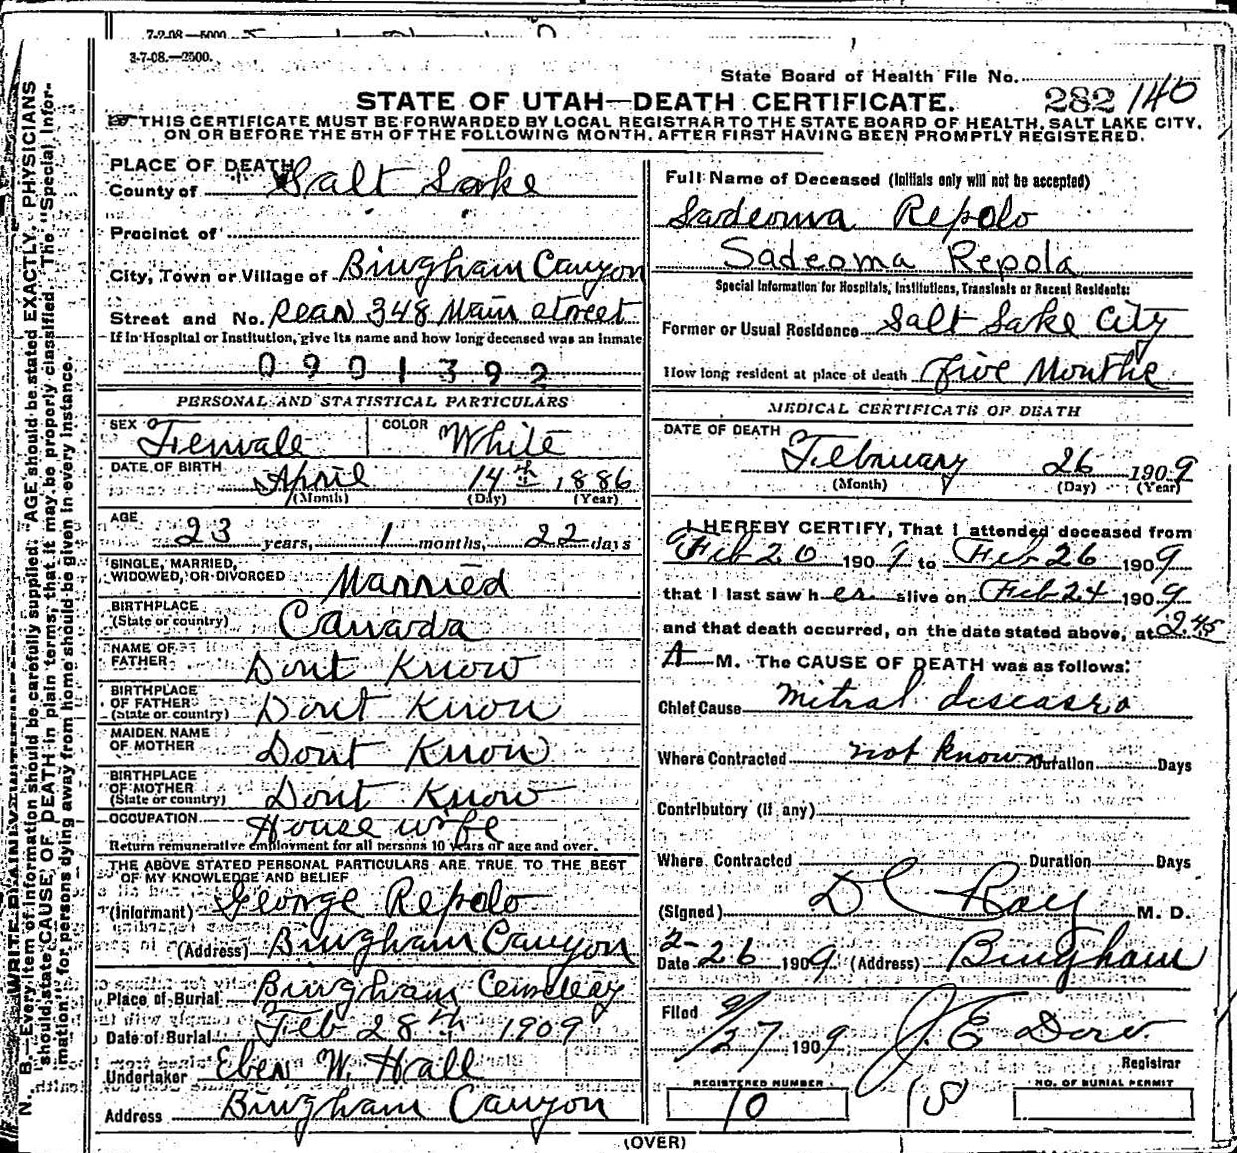 7-2-08.—5000.
3-7-08.—2500.
State Board of Health File No.
282 140
STATE OF UTAH—DEATH CERTIFICATE.
THIS CERTIFICATE MUST BE FORWARDED BY LOCAL REGISTRAR TO THE STATE BOARD OF HEALTH, SALT LAKE CITY,
ON OR BEFORE THE 5TH OF THE FOLLOWING MONTH, AFTER FIRST HAVING BEEN PROMPTLY REGISTERED.
N. B.—Every item of information should be carefully supplied. AGE should be stated EXACTLY. PHYSICIANS
should state CAUSE OF DEATH in plain terms, that it may be properly classified. The "Special Infor-
mation" for persons dying away from home should be given in every instance.
PLACE OF DEATH
County of Salt Lake
Precinct of
City, Town or Village of Bingham Canyon
Street and No. Rear 348 Main Street
If in Hospital or Institution, give its name and how long deceased was an inmate
0901392
PERSONAL AND STATISTICAL PARTICULARS
SEX Female COLOR White
DATE OF BIRTH April 14th 1886
(Month) (Day) (Year)
AGE 23 years, 1 months, 22 days
SINGLE, MARRIED,
WIDOWED, OR DIVORCED Married
BIRTHPLACE
(State or country) Canada
NAME OF
FATHER Dont Know
BIRTHPLACE
OF FATHER
(State or country) Dont Know
MAIDEN NAME
OF MOTHER Dont Know
BIRTHPLACE
OF MOTHER
(State or country) Dont Know
OCCUPATION House wife
Return remunerative employment for all persons 10 years of age and over.
THE ABOVE STATED PERSONAL PARTICULARS ARE TRUE TO THE BEST
OF MY KNOWLEDGE AND BELIEF
(Informant) George Repolo
(Address) Bingham Canyon
Place of Burial Bingham Cemetery
Date of Burial Feb 28th 1909
Undertaker Eben W. Hall
Address Bingham Canyon
Full Name of Deceased (Initials only will not be accepted)
Sadeoma Repolo
Sadeoma Repola
Special Information for Hospitals, Institutions, Transients or Recent Residents:
Former or Usual Residence Salt Lake City
How long resident at place of death Five Months
MEDICAL CERTIFICATE OF DEATH
DATE OF DEATH
February 26 1909
(Month) (Day) (Year)
I HEREBY CERTIFY, That I attended deceased from
Feb 20 1909 to Feb 26 1909
that I last saw her alive on Feb 24 1909
and that death occurred, on the date stated above, at 2.45
A M. The CAUSE OF DEATH was as follows:
Chief Cause mitral disease
Where Contracted not known Duration Days
Contributory (if any)
Where Contracted Duration Days
(Signed) D C Ray M. D.
Date 2-26 1909 (Address) Bingham
Filed 2/27 1909 J. E. Dow
Registrar
REGISTERED NUMBER
10
NO. OF BURIAL PERMIT
(OVER)